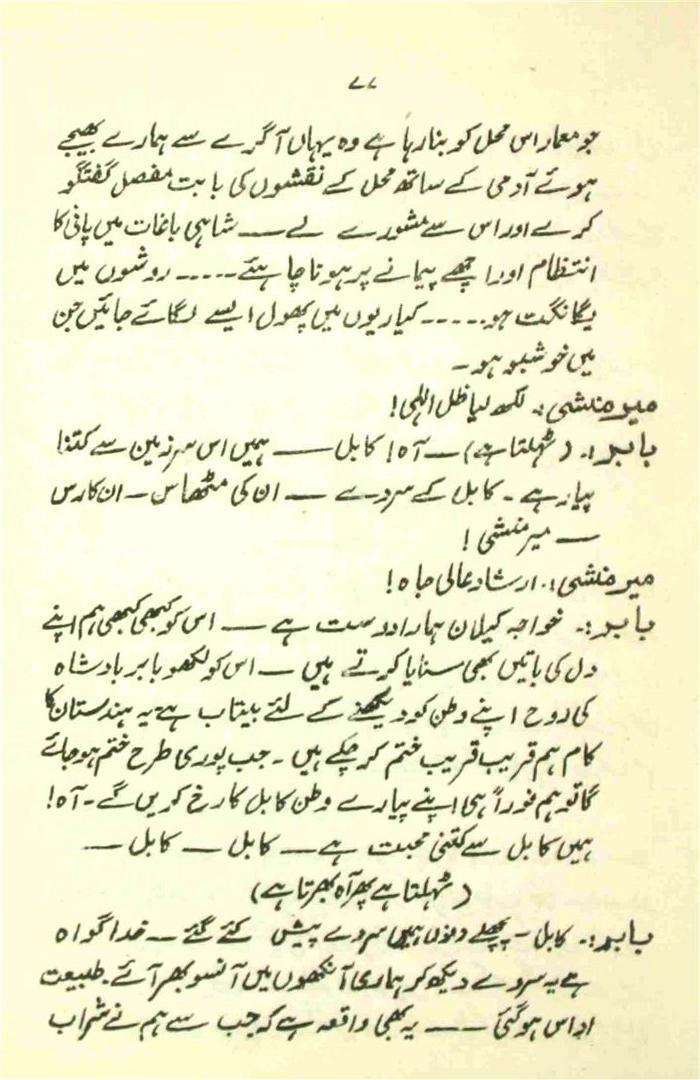 ۷۷
جو معمار اس محل کو بنا رہا ہے وہ یہاں آگرے سے ہمارے بھیجے
ہوئے آدمی کے ساتھ محل کے نقشوں کی بابت مفصل گفتگو
کرے اور اس سے مشورے لے ـــ شاہی باغات میں پانی کا
انتظام اور اچھے پیمانے پر ہونا چاہئے۔۔۔۔۔ روشوں میں
یگانگت ہو۔۔۔۔۔ کیاریوں میں پھول ایسے لگائے جائیں جن
میں خوشبو ہو۔
میر منشی:۔ لکھ لیا ظل الٰہی!
بابر:۔ (ٹہلتا ہے) ـــ آہ! کابل ـــ ہمیں اس سرزمین سے کتنا
پیار ہے۔ کابل کے سردے ـــ ان کی مٹھاس ـ ان کا رس
ـــ میر منشی!
میر منشی:۔ ارشاد عالی جاہ!
بابر:۔ خواجہ کیلان ہمارا دوست ہے ـــ اس کو کبھی کبھی ہم اپنے
دل کی باتیں بھی سنایا کرتے ہیں ـــ اس کو لکھو بابر بادشاہ
کی روح اپنے وطن کو دیکھنے کے لئے بیتاب ہے۔ یہ ہندستان کا
کام ہم قریب قریب ختم کر چکے ہیں۔ جب پوری طرح ختم ہو جائے
گا تو ہم فوراً ہی اپنے پیارے وطن کابل کا رخ کریں گے۔ آہ!
ہمیں کابل سے کتنی محبت ہے ـــ کابل ـــ کابل ـــ
(ٹہلتا ہے پھر آہ بھرتا ہے)
بابر:۔ کابل ـ پچھلے دنوں ہمیں سردے پیش کئے گئے ـــ خدا گواہ
ہے یہ سردے دیکھ کر ہماری آنکھوں میں آنسو بھر آئے۔ طبیعت
اداس ہو گئی ـــ یہ بھی واقعہ ہے کہ جب سے ہم نے شراب